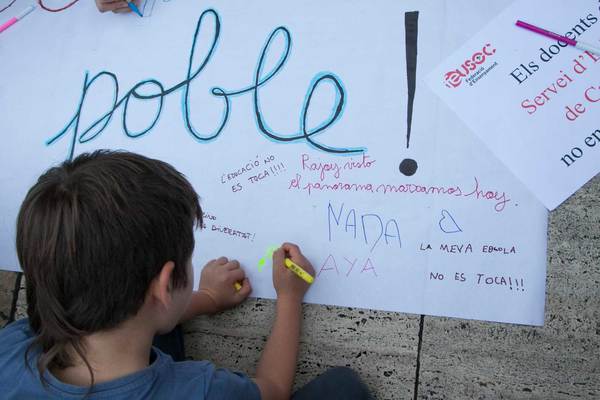 poble!
L'EDUCACIÓ NO
ES TOCA!!!!
Rajoy visto
el panorama marxamos hoy.
DIVERSITAT!
NADA
AYA
LA MEVA ESCOLA
NO ES TOCA!!!
eusoc
Federació
d'Ensenyament
Els docents
Servei d'E
de Ca
no en